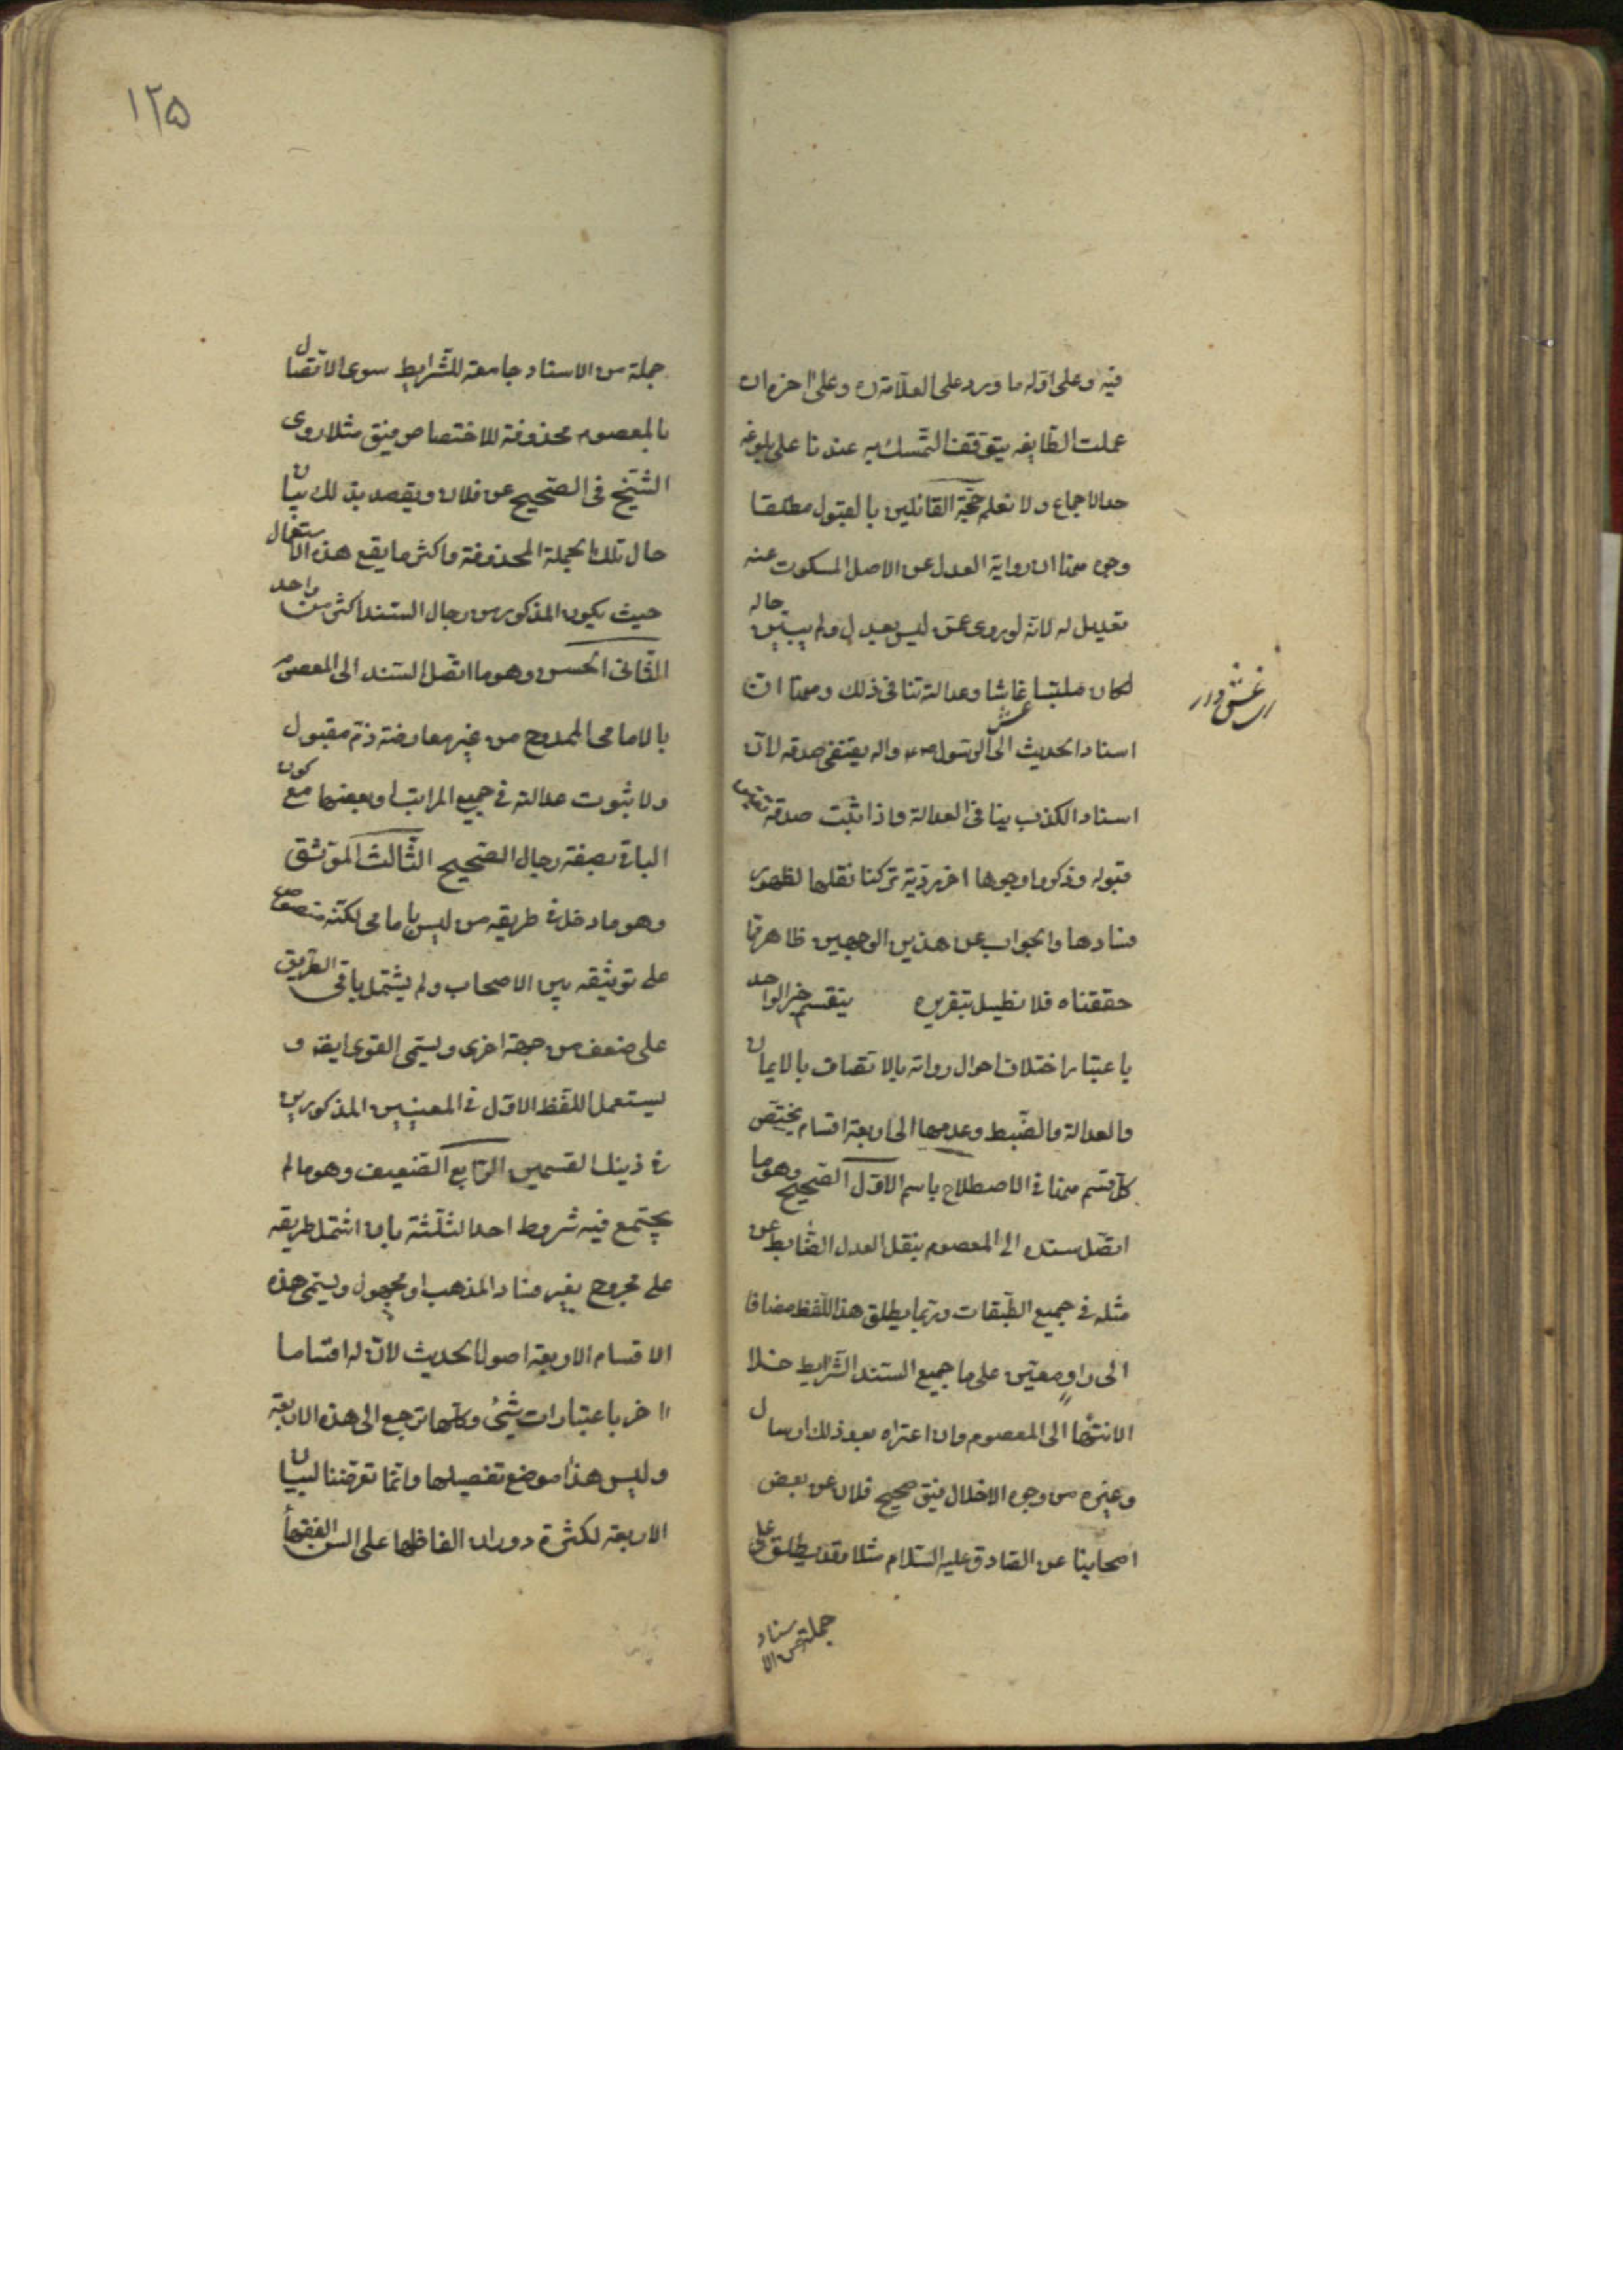 فيه وعلى اوله ما ورد على العلامة ره وعلى اخره ان
عملت الطايفه يتوقف التمسك به عندنا على بلوغه
حد الاجماع ولا نعلم حجة القائلين بالقبول مطلقا
وجوه منها ان رواية العدل عن الاصل المسكوت عنه
تعديل له لانه لو روى عمن ليس بعدل ولم يبين حاله
لكان ملبسا غاشا وعدالته تنافى ذلك ومنها ان
اسناد الحديث الى الرسول ص واله يقتضى صدقه لان
اسناد الكذب ينافى العدالة واذا ثبت صدقه تعين
قبوله وذكروا وجوها اخر ردية تركنا نقلها لظهور
فسادها والجواب عن هذين الوجهين ظاهر مما
حققناه فلا نطيل بتقريره ينقسم خبر الواحد
باعتبار اختلاف احوال رواته بالاتصاف بالايمان
والعدالة والضبط وعدمها الى اربعة اقسام يختص
كل قسم منها فى الاصطلاح باسم الاول الصحيح وهو ما
اتصل سنده الى المعصوم بنقل العدل الضابط عن
مثله فى جميع الطبقات وربما يطلق هذا اللفظ مضافا
الى راو معين على ما جمع السند الشرايط خلا
الانتهاء الى المعصوم وان اعتراه بعد ذلك ارسال
وغيره من وجوه الاختلال فيق صحيح فلان عن بعض
اصحابنا عن الصادق عليه السلام مثلا وقد يطلق على
جملة من الاسناد
جملة من الاسناد جامعة للشرايط سوى الاتصال
بالمعصوم محذوفة للاختصاص فيق مثلا روى
الشيخ فى الصحيح عن فلان ويقصد بذلك بيان
حال تلك الجملة المحذوفة واكثر ما يقع هذا الاستعمال
حيث يكون المذكور من رجال السند اكثر من واحد
الثانى الحسن وهو ما اتصل السند الى المعصوم
بالامامى الممدوح من غير معارضة ذم مقبول
ولا ثبوت عدالة فى جميع المراتب او بعضها مع كون
الباقى بصفة رجال الصحيح الثالث الموثق
وهو ما دخل فى طريقه من ليس بامامى لكنه منصوص
على توثيقه بين الاصحاب ولم يشتمل باقى الطريق
على ضعف من جهة اخرى ويسمى القوى ايضا و
يستعمل اللفظ الاول فى المعنيين المذكورين
فى ذينك القسمين الرابع الضعيف وهو ما لم
يجتمع فيه شروط احد الثلثة بان اشتمل طريقه
على مجروح بغير فساد المذهب او مجهول ويسمى هذه
الاقسام الاربعة اصول الحديث لان له اقساما
اخر باعتبارات شتى وكلها ترجع الى هذه الاربعة
وليس هذا موضع تفصيلها وانما تعرضنا لبيان
الاربعة لكثرة دوران الفاظها على السن الفقهاء
١٢۵